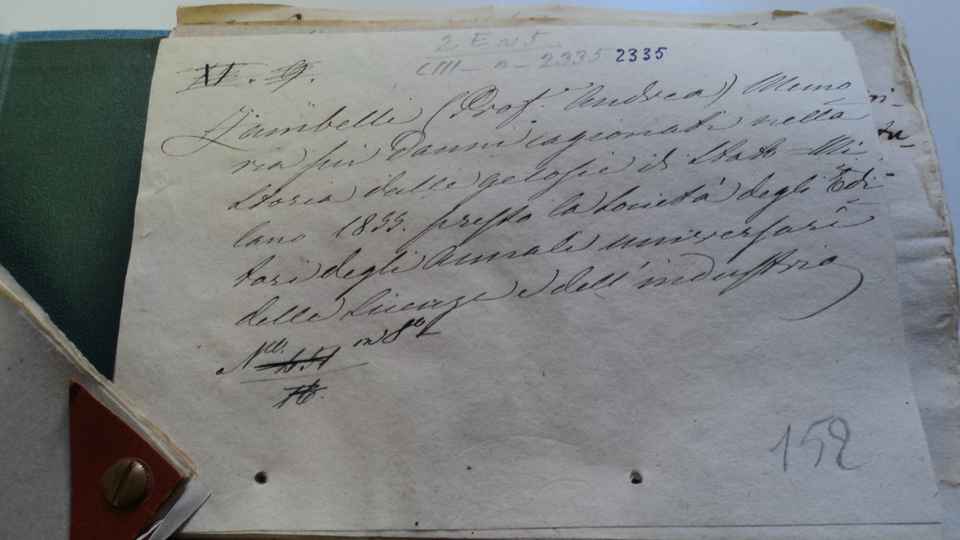 2 E n 5
CIII - a - 2335 2335
XI. G.
Zambelli (Prof. Andrea) Memo
ria sui Danni cagionati nella
Storia dalle gelosie di Stato - Mi
lano 1833. presso la Società degli Edi-
tori degli Annali universari
delle Scienze e dell'industria
N.ro in 8°
152